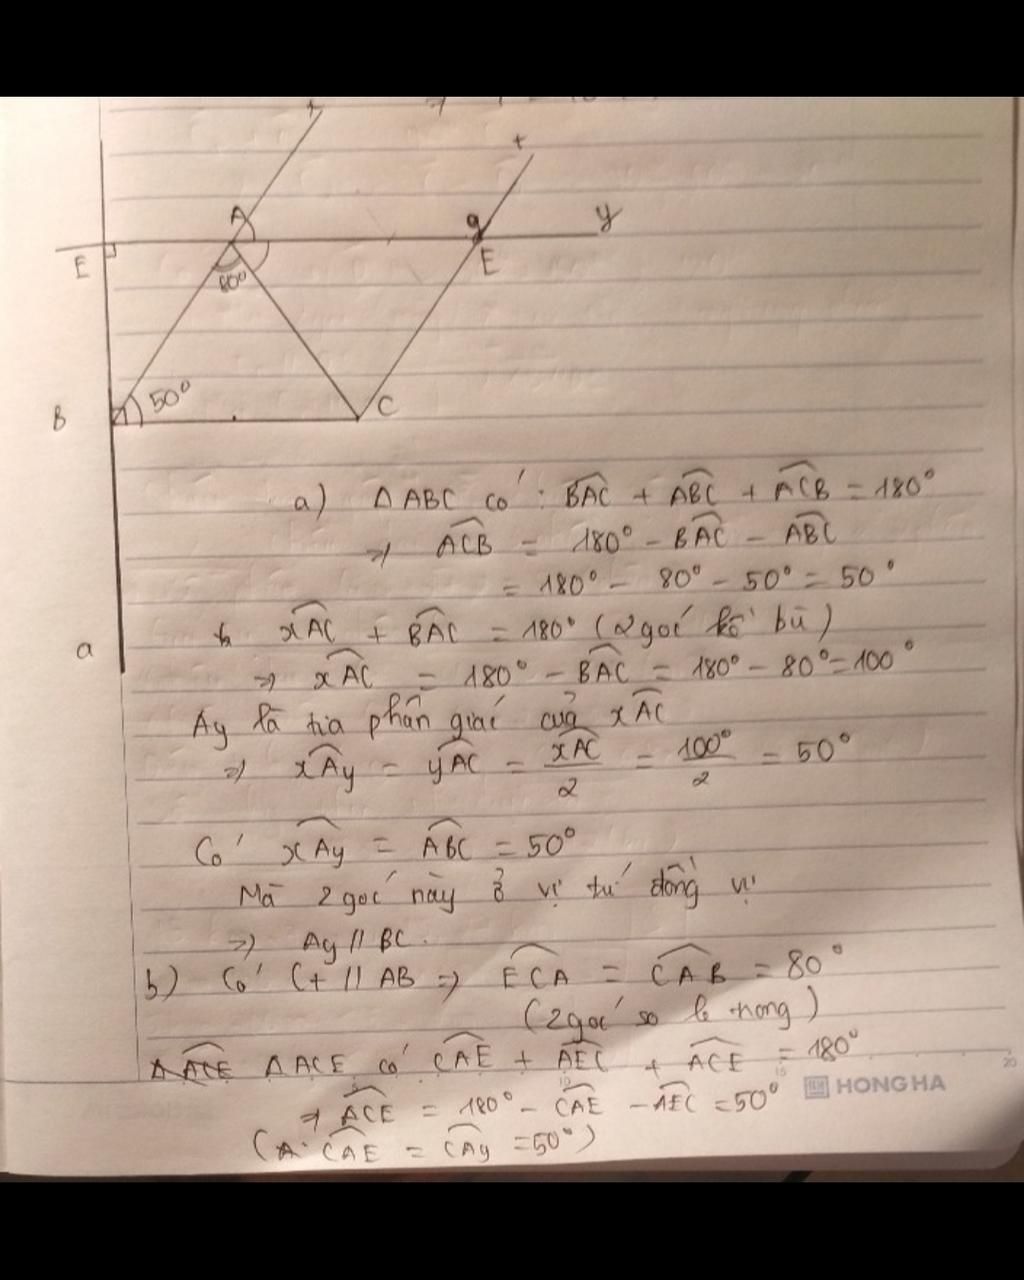 x
t
A
y
E
E
80°
50°
B
C
a) ΔABC có: BAC + ABC + ACB = 180°
=> ACB = 180° - BAC - ABC
= 180° - 80° - 50° = 50°
xAC + BAC = 180° (2 góc kề bù)
a
=> xAC = 180° - BAC = 180° - 80° = 100°
Ay là tia phân giác của xAC
=> xAy = yAC = xAC/2 = 100°/2 = 50°
Có xAy = ABC = 50°
Mà 2 góc này ở vị trí đồng vị
=> Ay // BC.
b) Có Ct // AB => ECA = CAB = 80°
(2 góc so le trong)
ΔACE có CAE + AEC + ACE = 180°
HONG HA
=> ACE = 180° - CAE - AEC = 50°
(CAE = CAy = 50°)